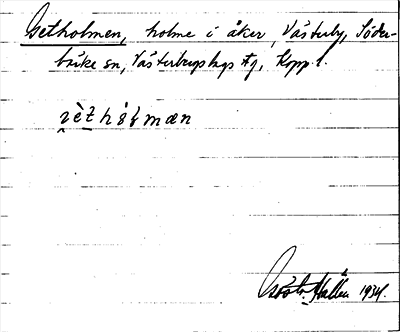 Getholmen, holme i åker, Västerby, Söder-
bärke sn, Västerbergslags fg, Kopp. l.
Gösta Hallén 1934.